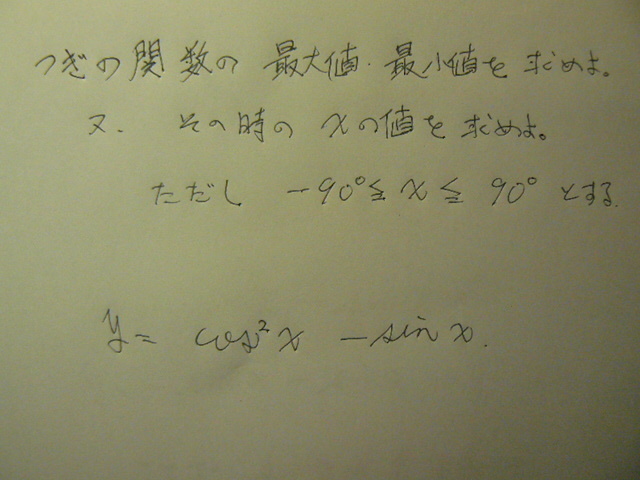 つぎの関数の 最大値・最小値を 求めよ。
又、 その時の xの値を 求めよ。
ただし -90°≦ x ≦ 90° とする.
y = cos²x - sin x.